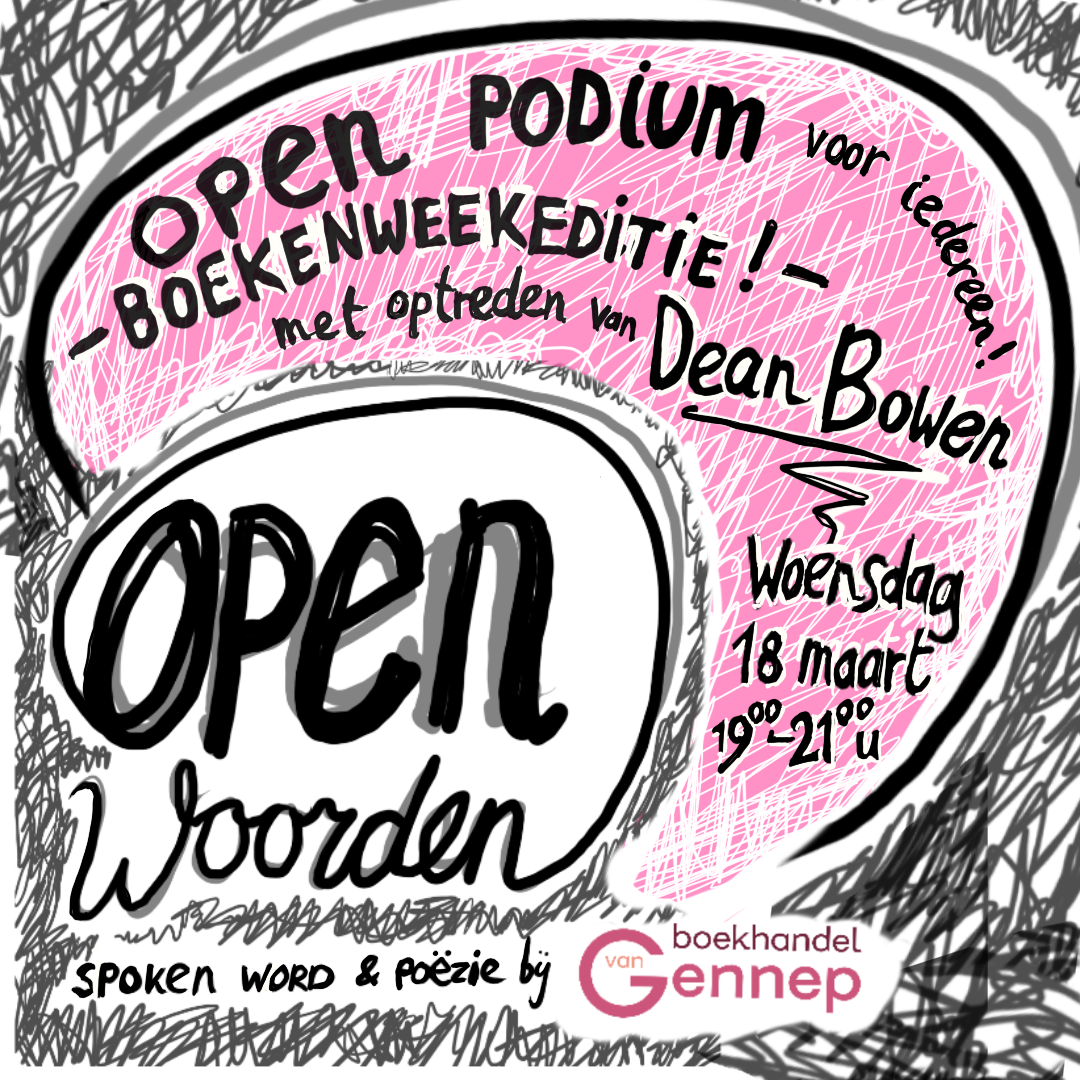 OPEN PODIUM voor iedereen!
- BOEKENWEEKEDITIE! -
met optreden van Dean Bowen
Woensdag
18 maart
19⁰⁰-21⁰⁰u
open
Woorden
SPOKEN WORD & POËZIE bij
boekhandel
van Gennep